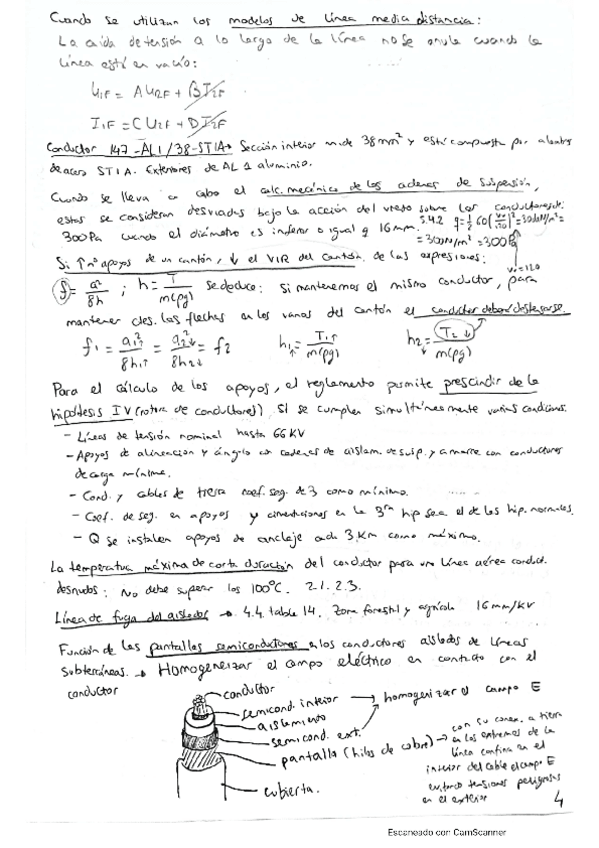 Cuando se utilizan los modelos de línea media distancia:
La caída de tensión a lo largo de la línea no se anula cuando la
línea está en vacío:
U1F = A U2F + B I2F
I1F = C U2F + D I2F
Conductor 147-AL1/38-ST1A → Sección interior mide 38mm² y está compuesta por alambres
de acero ST1A. Exteriores de AL1 aluminio.
Cuando se lleva a cabo el calc. mecánico de las cadenas de suspensión,
estas se consideran desviadas bajo la acción del viento sobre los conductores de:
300Pa cuando el diámetro es inferior o igual a 16mm. 5.4.2 q = ½ 60 (Vv/120)² = 30daN/m² =
= 300N/m² = 300Pa
Vv = 120
Si ↑ nº apoyos de un cantón, ↓ el VIR del cantón. de las expresiones:
f = a²/8h ; h = T/m(pg) se deduce: Si mantenemos el mismo conductor, para
mantener ctes. las flechas en los vanos del cantón el conductor deberá destensarse.
f1 = a1²↑/8h1↑ = a2²↓/8h2↓ = f2 h1↑ = T1↑/m(pg) h2↓ = T2↓/m(pg)
Para el cálculo de los apoyos, el reglamento permite prescindir de la
hipótesis IV (rotura de conductores) si se cumplen simultáneamente varias condiciones.
- Líneas de tensión nominal hasta 66KV
- Apoyos de alineación y ángulo con cadenas de aislam. de susp. y amarre con conductores
de carga mínima.
- Cond. y cables de tierra coef. seg. de 3 como mínimo.
- Coef. de seg. en apoyos y cimentaciones en la 3ra hip sea el de las hip. normales.
- Q se instalen apoyos de anclaje cada 3Km como máximo.
La temperatura máxima de corta duración del conductor para una línea aérea conduct.
desnudos: No debe superar los 100ºC. 2.1.2.3.
Línea de fuga del aislador → 4.4. tabla 14. Zona forestal y agrícola 16mm/KV
Función de las pantallas semiconductoras en los conductores aislados de líneas
subterráneas. → Homogeneizar el campo eléctrico en contacto con el
conductor
conductor
semicond. interior → homogenizar el campo E
aislamiento
semicond. ext.
pantalla (hilos de cobre) → con su conex. a tierra
en los extremos de la
línea confina en el
interior del cable el campo E
evitando tensiones peligrosas
en el exterior
cubierta.
4
Escaneado con CamScanner